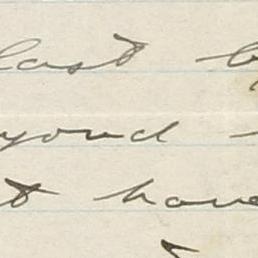 last b
yond
t have